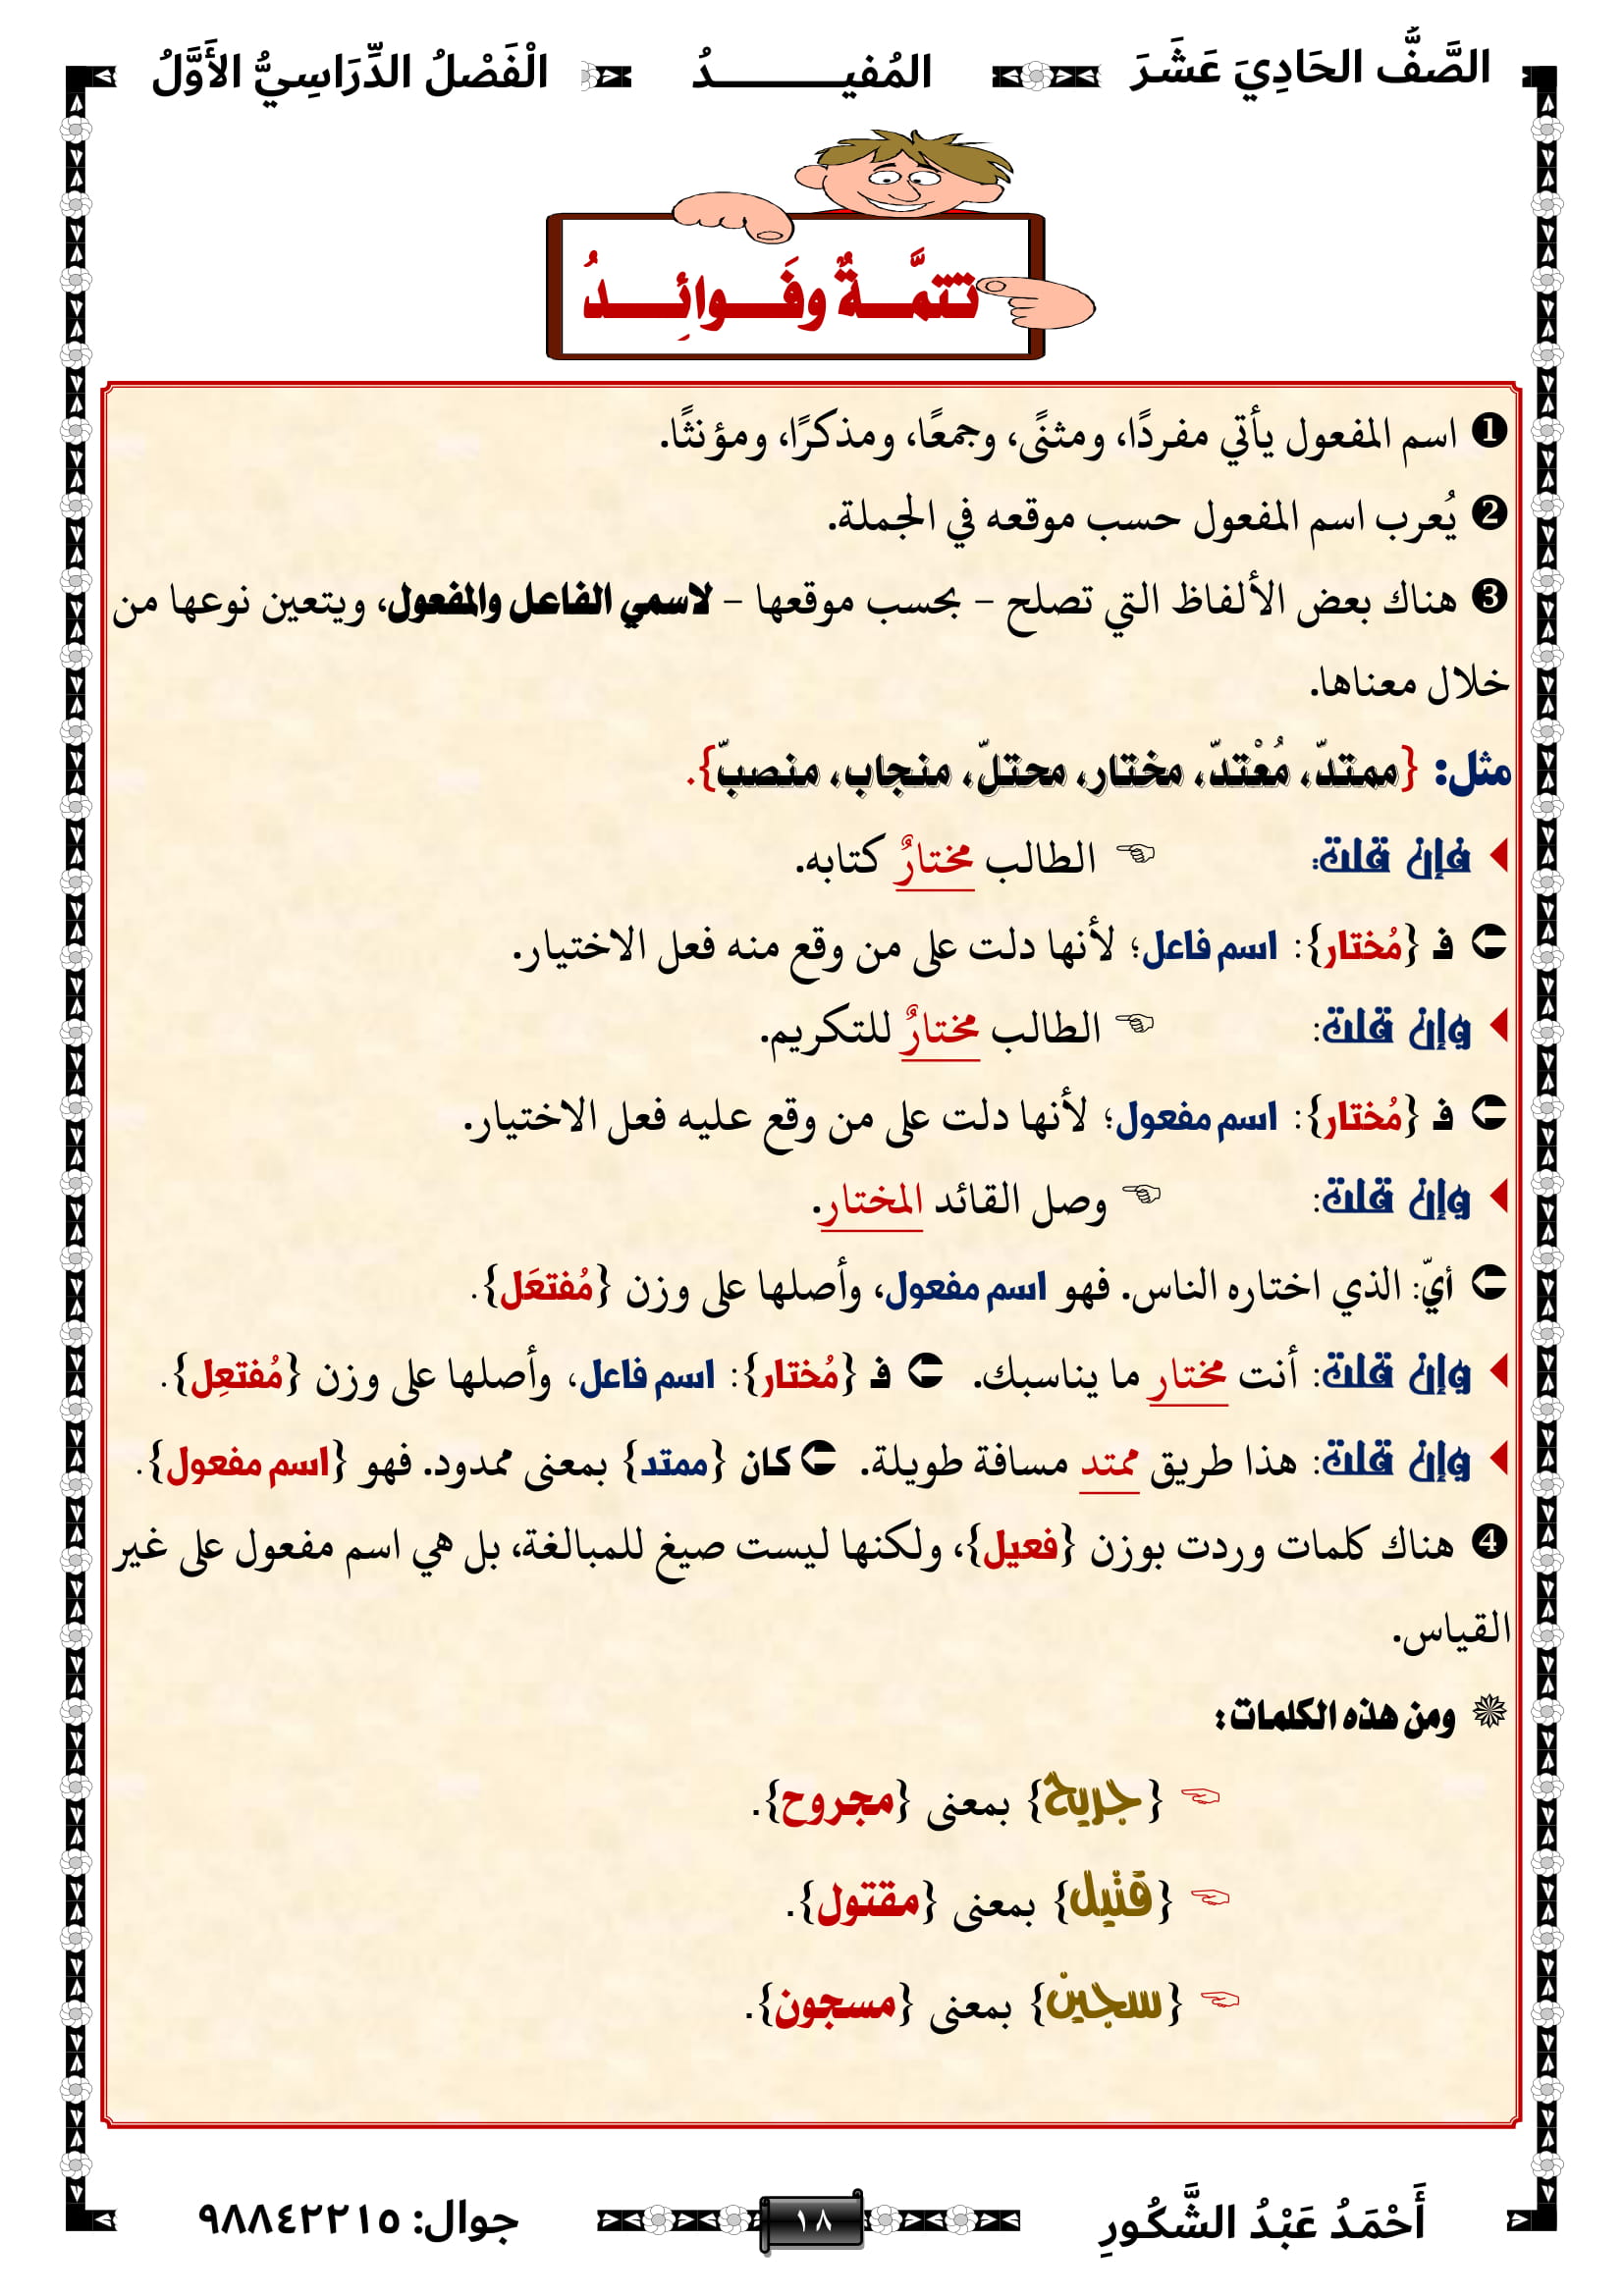 الصَّفُّ الحَادِيَ عَشَرَ المُفيـــــــــدُ الْفَصْلُ الدِّرَاسِيُّ الأَوَّلُ
تتمَّـــةٌ وفَـــوائِـــدُ
❶ اسم المفعول يأتي مفردًا، ومثنًى، وجمعًا، ومذكرًا، ومؤنثًا.
❷ يُعرب اسم المفعول حسب موقعه في الجملة.
❸ هناك بعض الألفاظ التي تصلح – بحسب موقعها – لاسمي الفاعل والمفعول، ويتعين نوعها من
خلال معناها.
مثل: {ممتدّ، مُعْتدّ، مختار، محتلّ، منجاب، منصبّ}.
فإن قلت: ☜ الطالب مختارٌ كتابه.
فـ {مُختار}: اسم فاعل؛ لأنها دلت على من وقع منه فعل الاختيار.
وإن قلت: ☜ الطالب مختارٌ للتكريم.
فـ {مُختار}: اسم مفعول؛ لأنها دلت على من وقع عليه فعل الاختيار.
وإن قلت: ☜ وصل القائد المختار.
أيّ: الذي اختاره الناس. فهو اسم مفعول، وأصلها على وزن {مُفتعَل}.
وإن قلت: أنت مختار ما يناسبك. فـ {مُختار}: اسم فاعل، وأصلها على وزن {مُفتعِل}.
وإن قلت: هذا طريق ممتد مسافة طويلة. كان {ممتد} بمعنى ممدود. فهو {اسم مفعول}.
❹ هناك كلمات وردت بوزن {فعيل}، ولكنها ليست صيغ للمبالغة، بل هي اسم مفعول على غير
القياس.
ومن هذه الكلمات:
☜ {جريح} بمعنى {مجروح}.
☜ {قتيل} بمعنى {مقتول}.
☜ {سجين} بمعنى {مسجون}.
أَحْمَدُ عَبْدُ الشَّكُورِ ١٨ جوال: ٩٨٨٤٢٢١٥